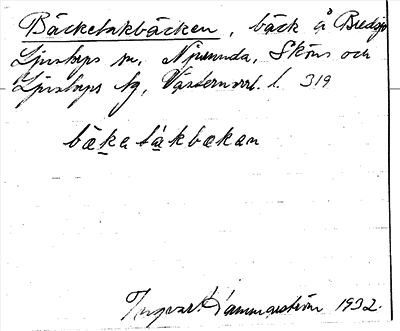 Bäcketakbäcken, bäck å Bredsjö
Ljustorps sn, Njurunda, Sköns och
Ljustorps tg, Västernorrl. l. 319
bäka takbækan
Ingvar Hammarström 1932.